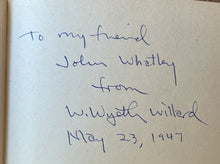 To my friend
John Whatley
from
W. Wyeth Willard
May 23, 1947